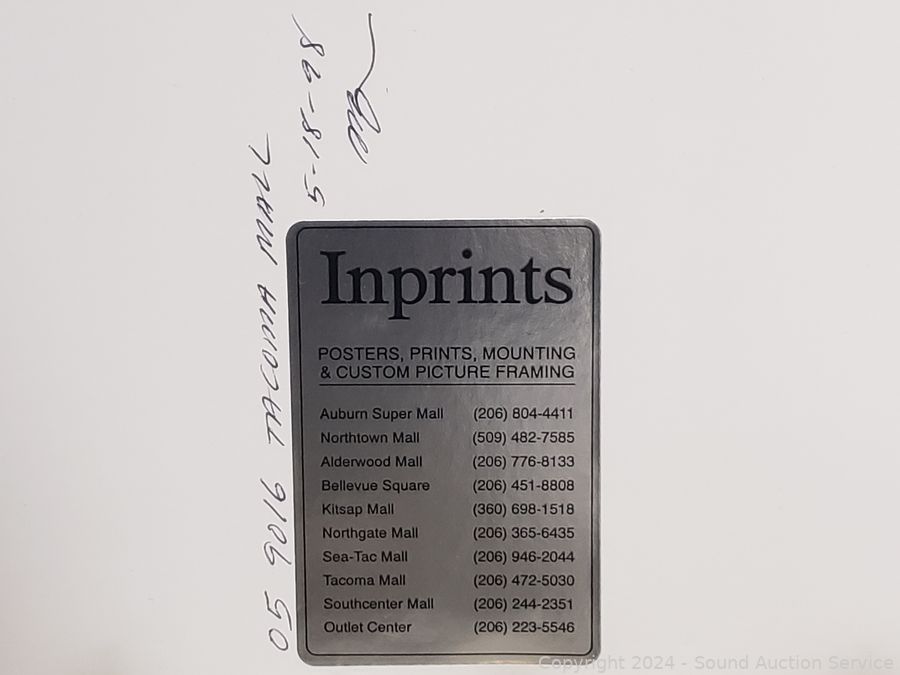 50 9016 TACOMA MALL
5-18-98
Inprints
POSTERS, PRINTS, MOUNTING
& CUSTOM PICTURE FRAMING
Auburn Super Mall (206) 804-4411
Northtown Mall (509) 482-7585
Alderwood Mall (206) 776-8133
Bellevue Square (206) 451-8808
Kitsap Mall (360) 698-1518
Northgate Mall (206) 365-6435
Sea-Tac Mall (206) 946-2044
Tacoma Mall (206) 472-5030
Southcenter Mall (206) 244-2351
Outlet Center (206) 223-5546
Copyright 2024 - Sound Auction Service